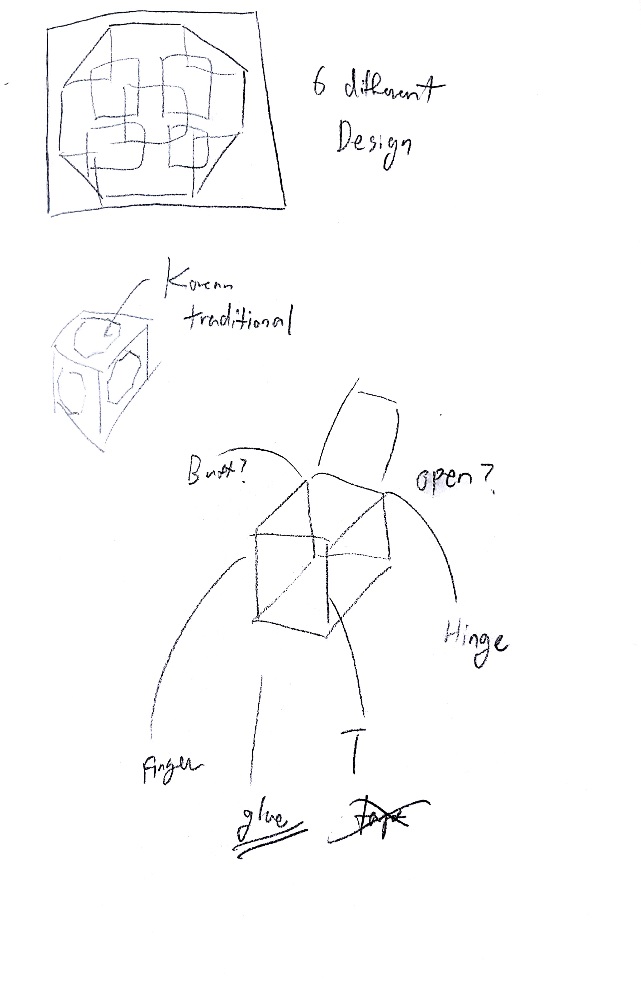 6 different
Design
Korean
traditional
Butt?
open?
Hinge
Finger
T
glue
tape